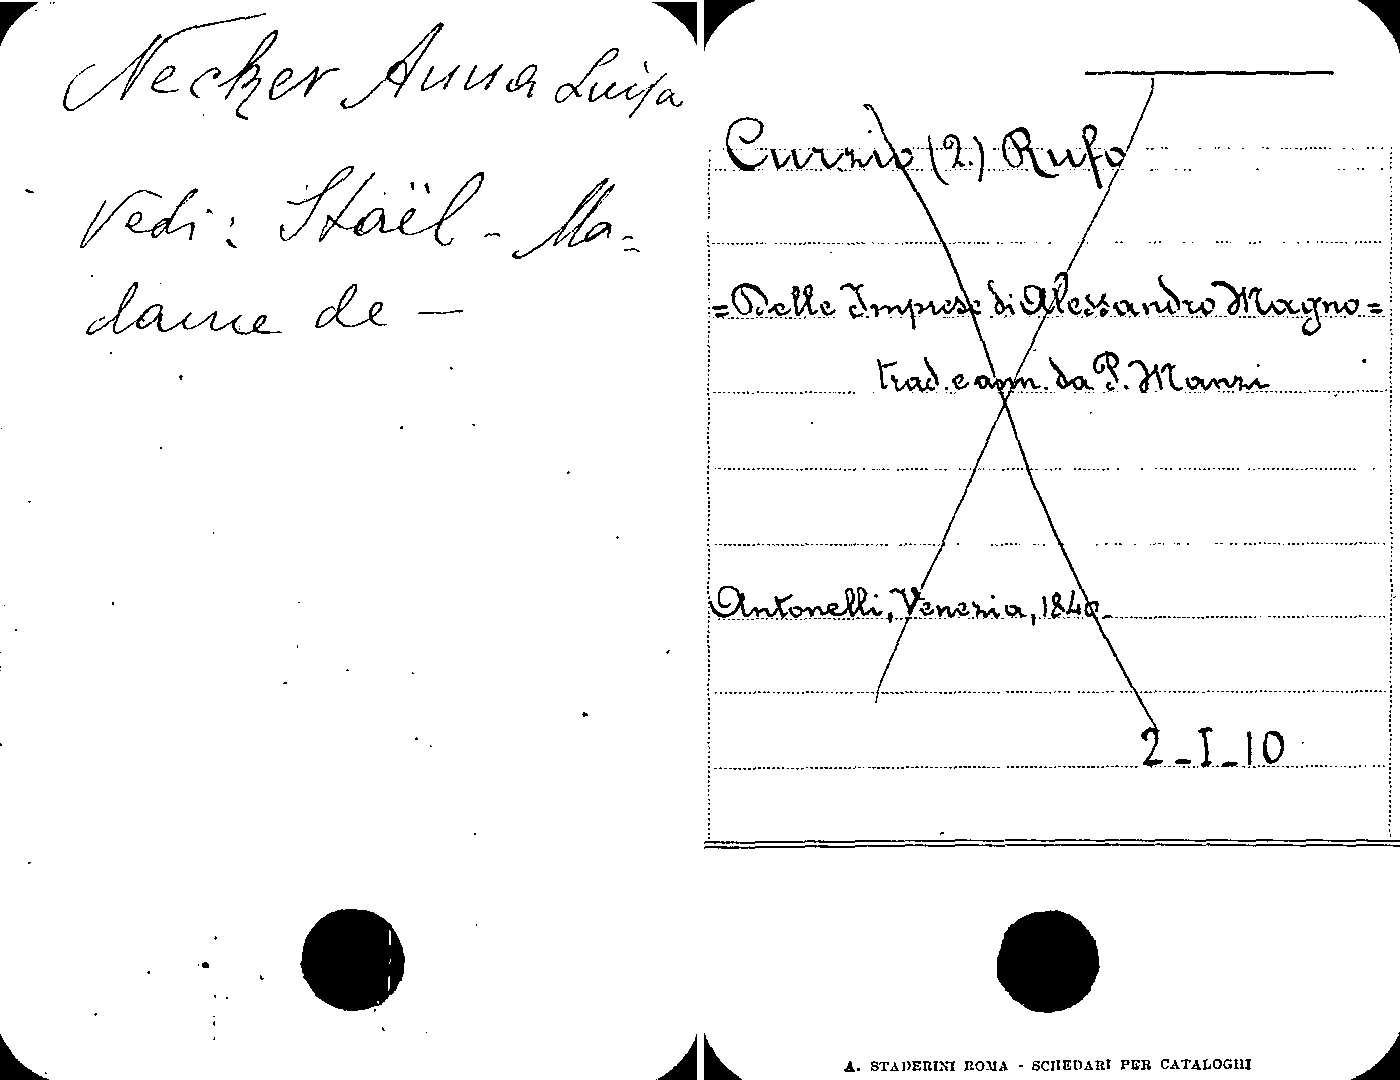 Necker Anna Luisa
Vedi: Staël - Ma=
dame de —
Curzio (2.) Rufo
=Delle Imprese di Alessandro Magno=
trad. e ann. da P. Manzi
Antonelli, Venezia, 1840_
2_I_10
A. STADERINI ROMA - SCHEDARI PER CATALOGHI